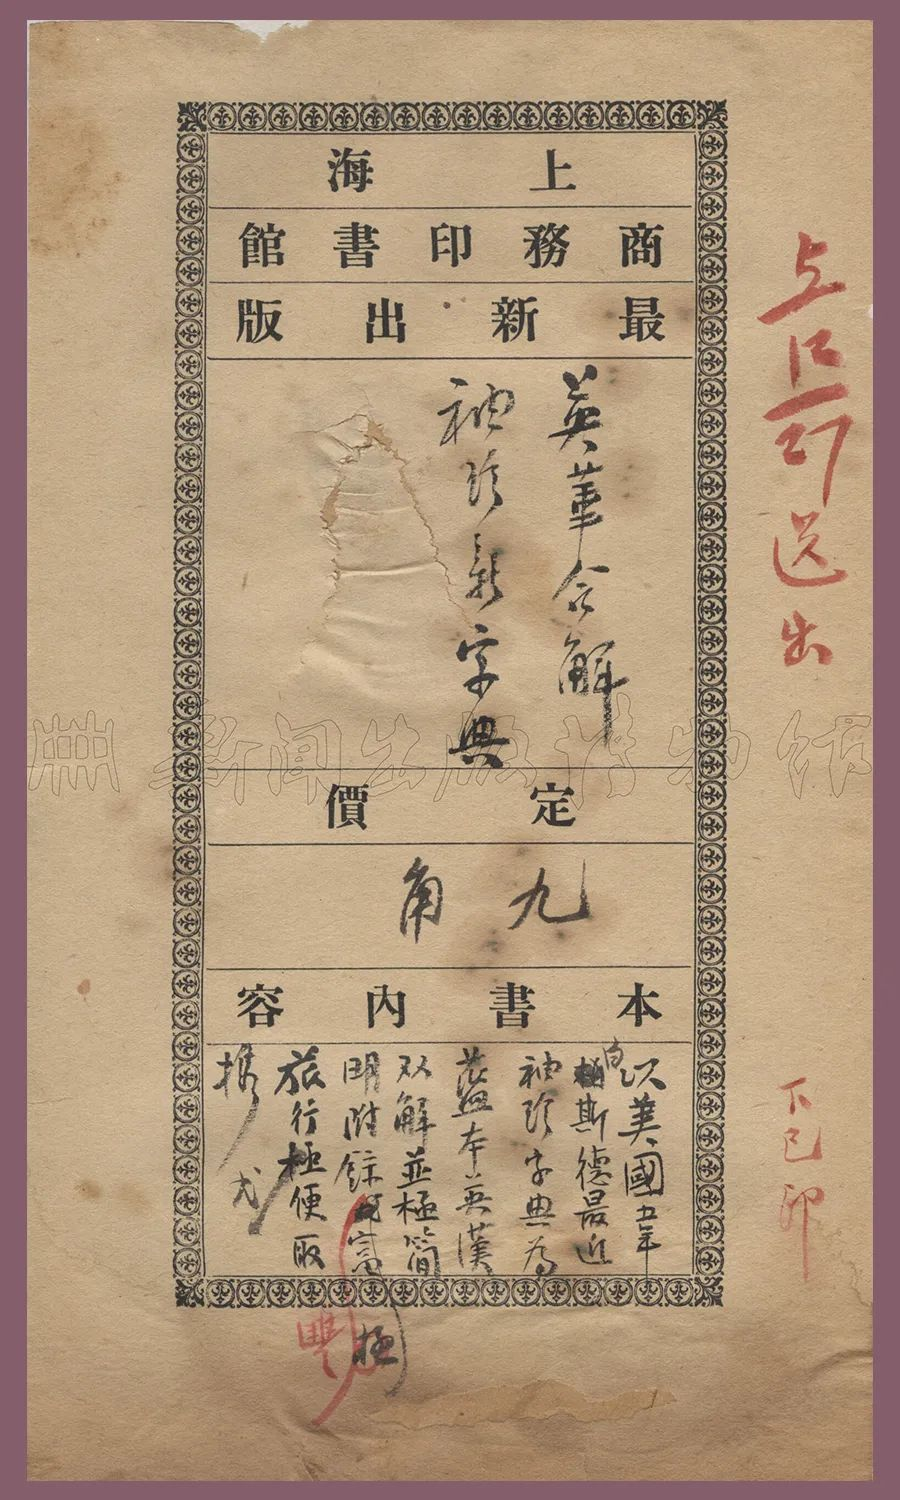 上海
商務印書館
最新出版
英華合解
袖珍新字典
定價
九角
本書內容
以美國
斯德最近
袖珍字典為
藍本英漢
双解並極簡
明附錄極富
豐
旅行極便取
攜
送出
下已印
新聞出版博物館